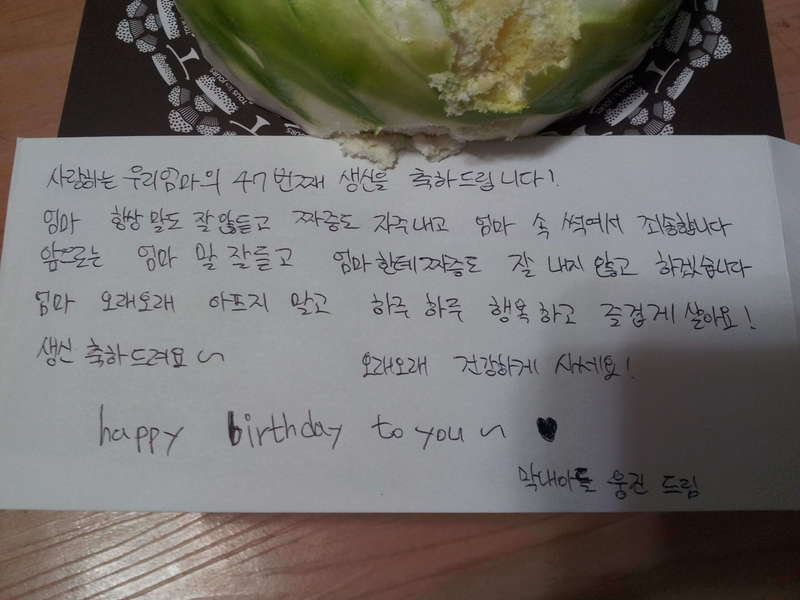 사랑하는 우리엄마의 47번째 생신을 축하드립니다!
엄마 항상 말도 잘 않듣고 짜증도 자주내고 엄마 속 썩여서 죄송합니다
앞으로는 엄마 말 잘듣고 엄마한테 짜증도 잘 내지 않고 하겠습니다
엄마 오래오래 아프지 말고 하루 하루 행복하고 즐겁게 살아요!
생신 축하드려요~ 오래오래 건강하게 사세요!
happy birthday to you ~ ♥
막내아들 웅진 드림
TOUS les JOURS